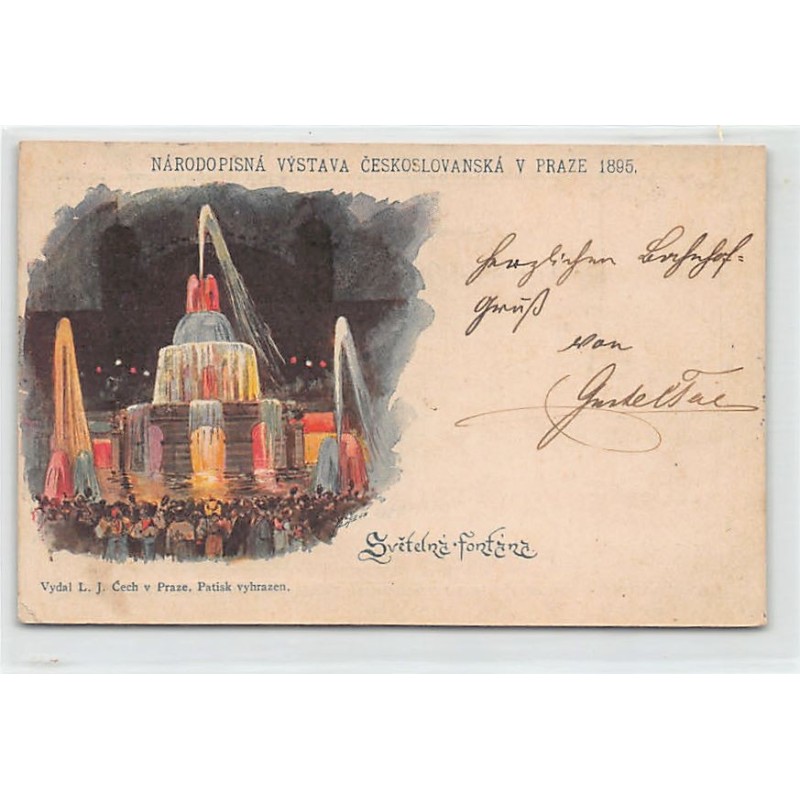 NÁRODOPISNÁ VÝSTAVA ČESKOSLOVANSKÁ V PRAZE 1895.
Herzlichen Bahnhof-
Gruß
von
Světelná Fontána
Vydal L. J. Čech v Praze. Patisk vyhrazen.